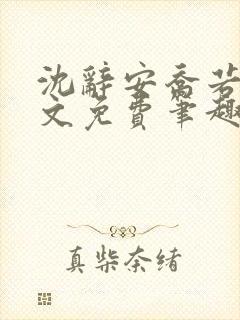 沈辞安乔若
文免费笔趣
真柴奈绪